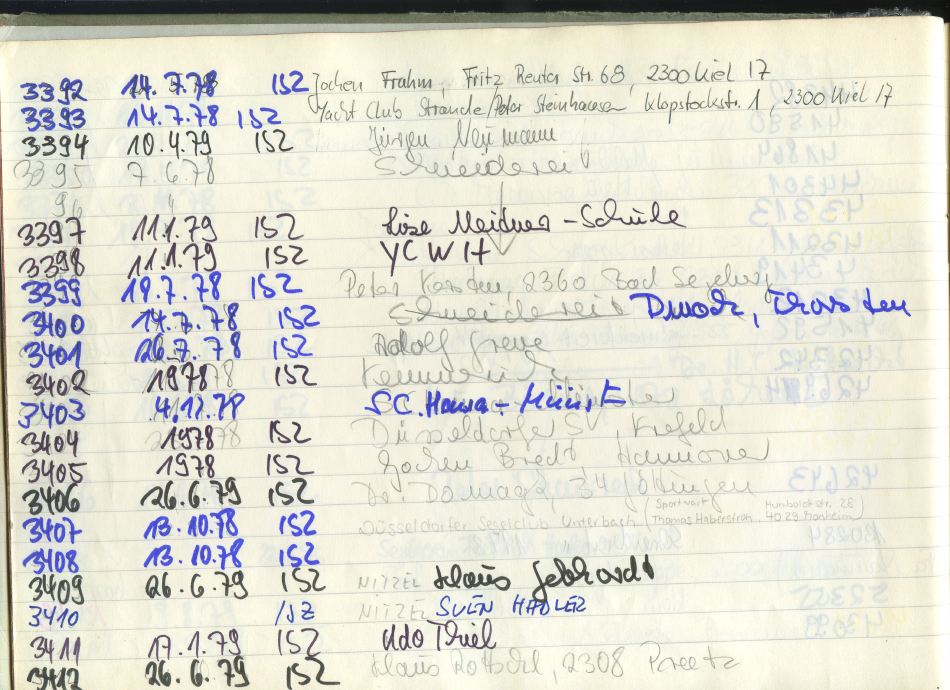 3392 14.7.78 ISZ Jochen Frahm, Fritz Reuter Str. 68, 2300 Kiel 17
3393 14.7.78 ISZ Yacht Club Strande/Peter Steinhausen, Klopstockstr. 1, 2300 Kiel 17
3394 10.4.79 ISZ Jürgen Neumann
3395 7.6.78 Schneidereit
96 "
3397 11.1.79 ISZ Lise Meitner-Schule
3398 11.1.79 ISZ YCWH
3399 19.7.78 ISZ Peter 2360 Bad Segeberg
3400 14.7.78 ISZ Schneidereit Thorsten
3401 26.7.78 ISZ Adolf Greve
3402 1978 ISZ
3403 4.12.78 SC. Hansa-Münster
3404 1978 ISZ Düsseldorfer SV, Krefeld
3405 1978 ISZ Jochen Bredt, Hannover
3406 26.6.79 ISZ Dr. Domagk, 34 Göttingen
3407 13.10.78 ISZ Düsseldorfer Segelclub Unterbach (Sportwart Thomas Haberstroh, Humboldtstr. 28 4029 Monheim)
3408 13.10.78 ISZ
3409 26.6.79 ISZ NITZEL Klaus Gebhardt
3410 ISZ NITZEL SVEN HADLER
3411 17.1.79 ISZ Udo Thiel
3412 26.6.79 ISZ Klaus 2308 Preetz